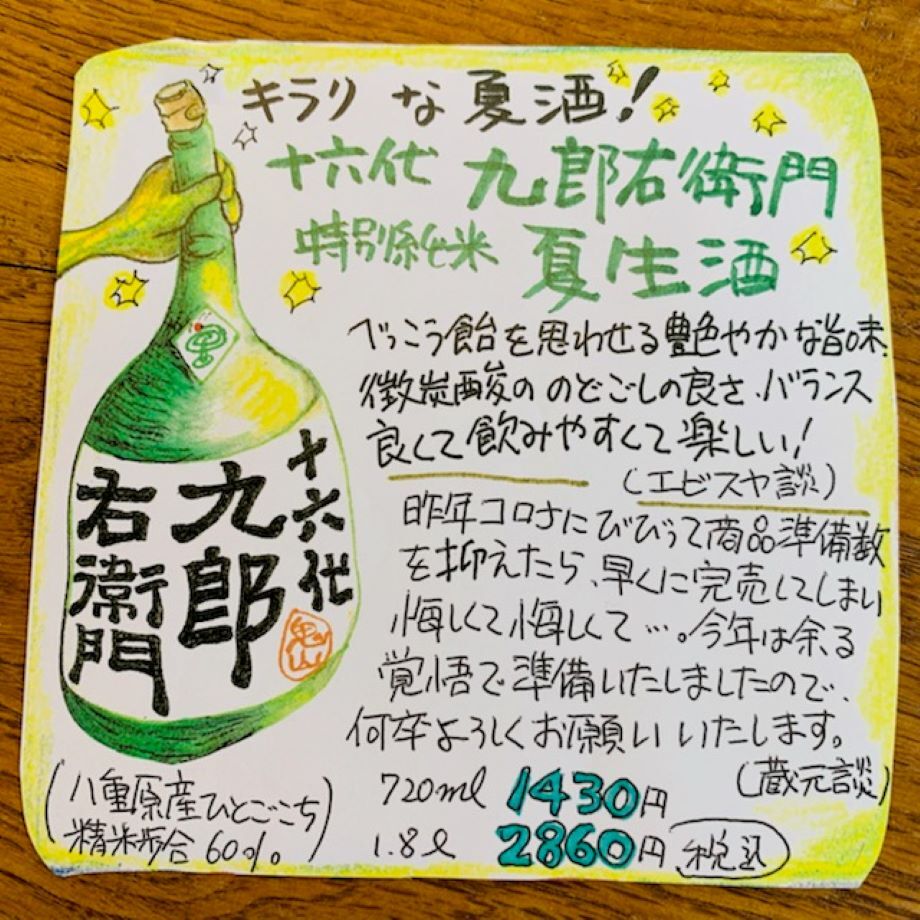 キラリな夏酒!
十六代 九郎右衛門
特別純米 夏生酒
べっこう飴を思わせる豊艶やかな旨味、
微炭酸の のどごしの良さ、バランス
良くて飲みやすくて楽しい!
(エビスヤ談)
昨年コロナにびびって商品準備数
を抑えたら、早くに完売してしまい
悔しくて悔しくて…。今年は余る
覚悟で準備いたしましたので、
何卒よろしくお願いいたします。
(蔵元談)
十六代
九郎
右衛門
(八重原産ひとごこち
精米歩合60%)
720ml 1430円
1.8ℓ 2860円 税込